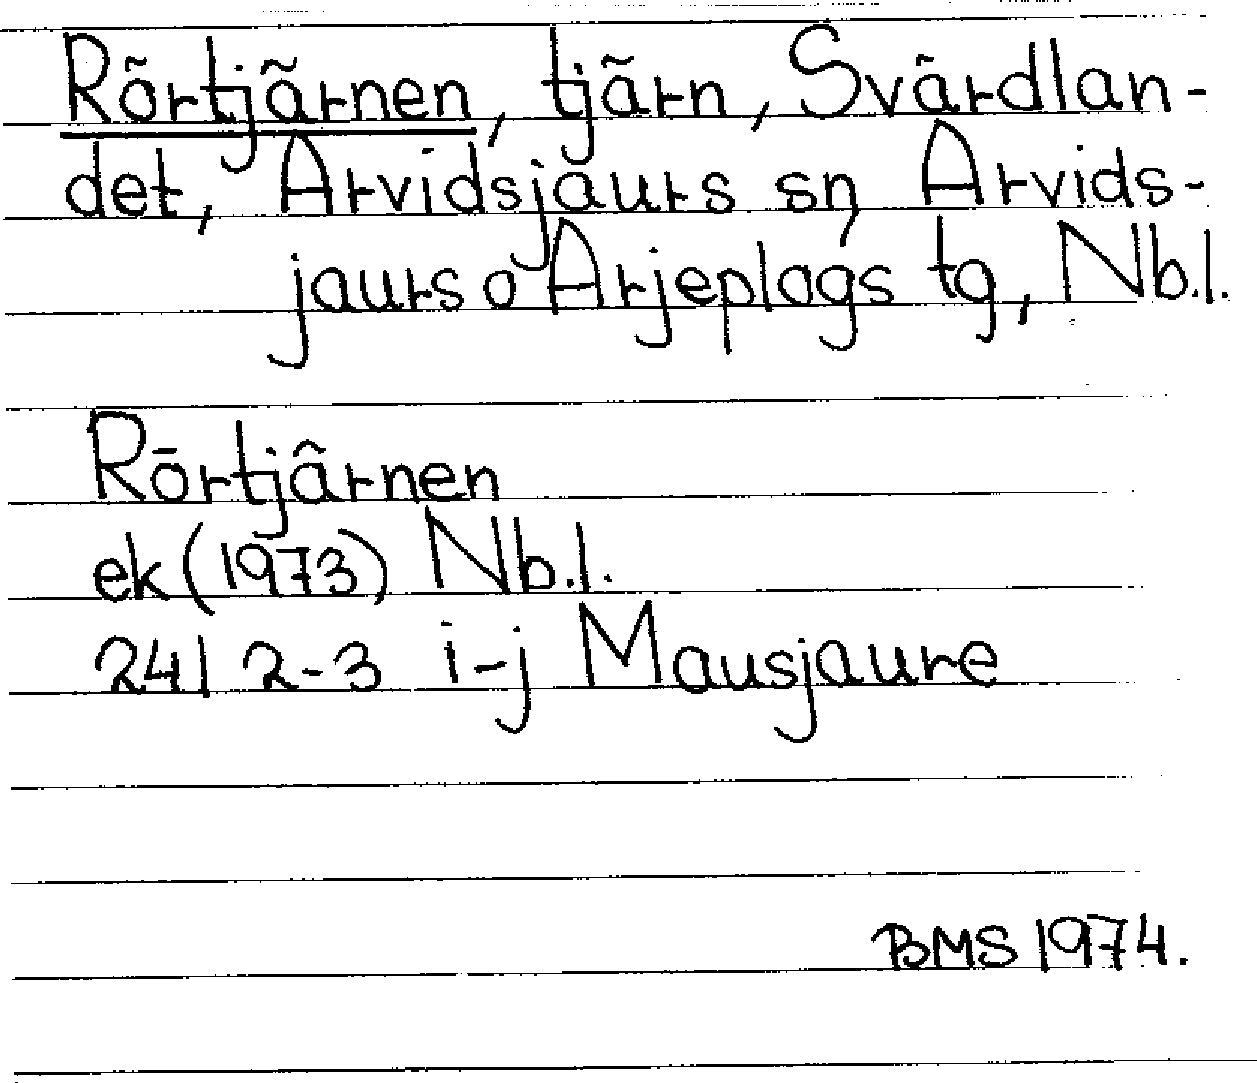 Rörtjärnen, tjärn, Svärdlan-
det, Arvidsjaurs sn Arvids-
jaurs o Arjeplogs tg, Nb.l.
Rörtjärnen
ek (1973) Nb.l.
24I 2-3 i-j Mausjaure
BMS 1974.